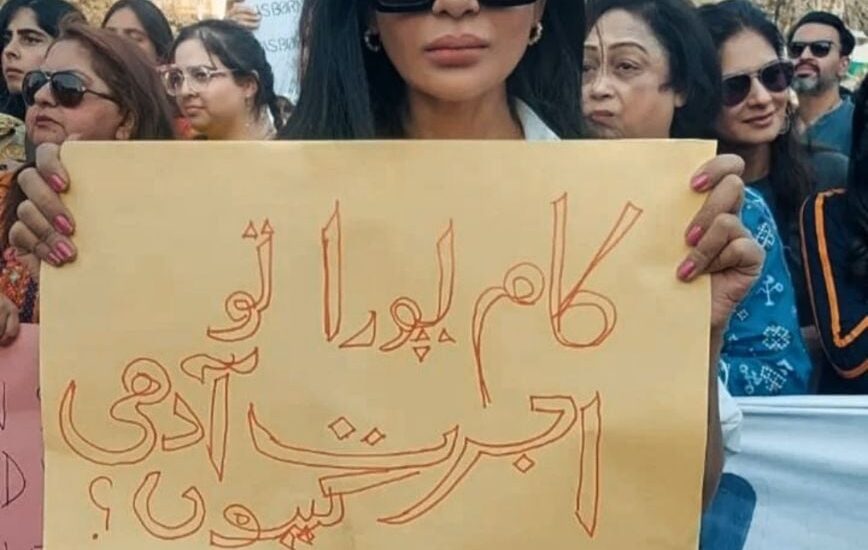 کام پورا تو
اجرت آدھی
کیوں؟